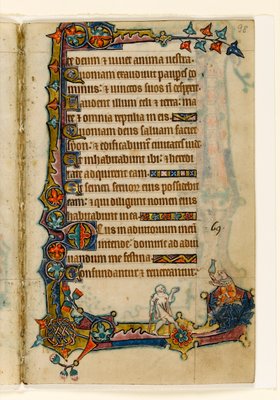 98
te deum & vivet anima vestra.
Quoniam exaudivit pauperes do
minus: & vinctos suos non despexit.
Laudent illum celi & terra: ma
re & omnia reptilia in eis
Quoniam deus salvam faciet
syon: & edificabuntur civitates iude
Et inhabitabunt ibi: & heredi
tate adquirent eam.
Et semen servorum eius possidebit
eam: & qui diligunt nomen eius
habitabunt in ea.
Deus in adiutorium meum
intende: domine ad adiu
vandum me festina
Confundantur & revereantur:
69.